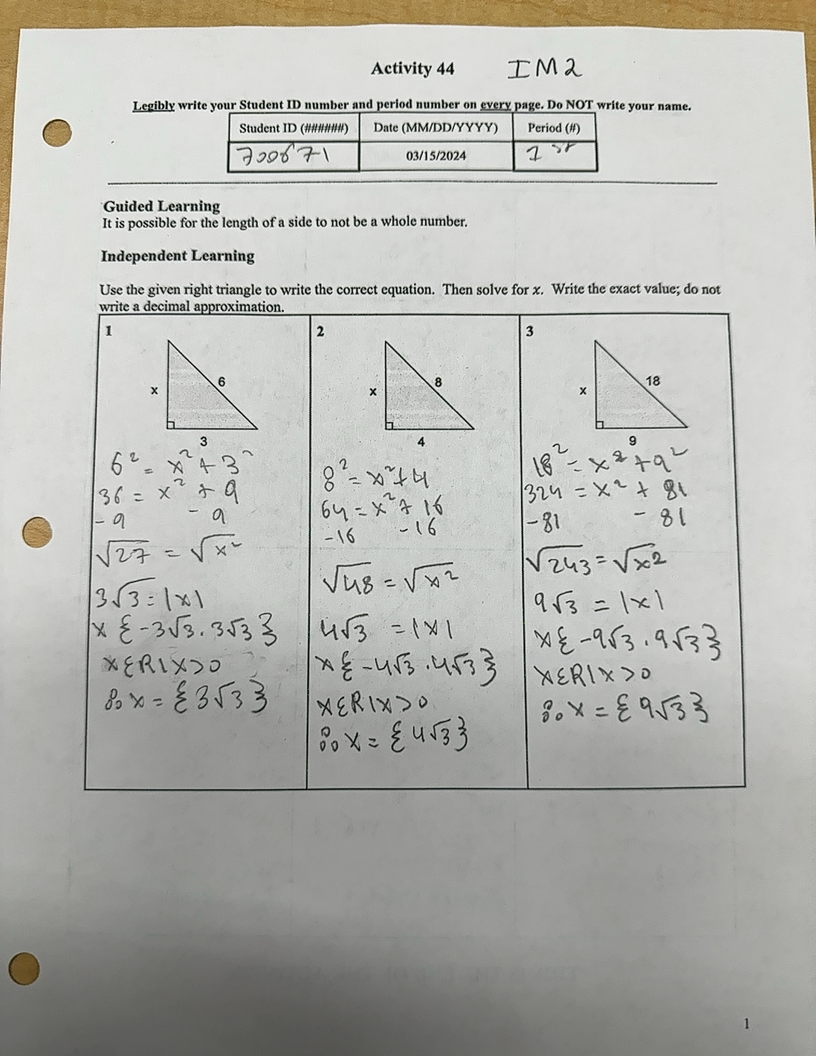 Activity 44 IM2
Legibly write your Student ID number and period number on every page. Do NOT write your name.
Student ID (######) Date (MM/DD/YYYY) Period (#)
700671 03/15/2024 1st
Guided Learning
It is possible for the length of a side to not be a whole number.
Independent Learning
Use the given right triangle to write the correct equation. Then solve for x. Write the exact value; do not
write a decimal approximation.
1
x
6
3
6² = x² + 3²
36 = x² + 9
-9 -9
√27 = √x²
3√3 = |x|
x { -3√3, 3√3 }
x ∈ R | x > 0
∴ x = { 3√3 }
2
x
8
4
8² = x² + 4
64 = x² + 16
-16 -16
√48 = √x²
4√3 = |x|
x { -4√3, 4√3 }
x ∈ R | x > 0
∴ x = { 4√3 }
3
x
18
9
18² = x² + 9²
324 = x² + 81
-81 -81
√243 = √x²
9√3 = |x|
x { -9√3, 9√3 }
x ∈ R | x > 0
∴ x = { 9√3 }
1